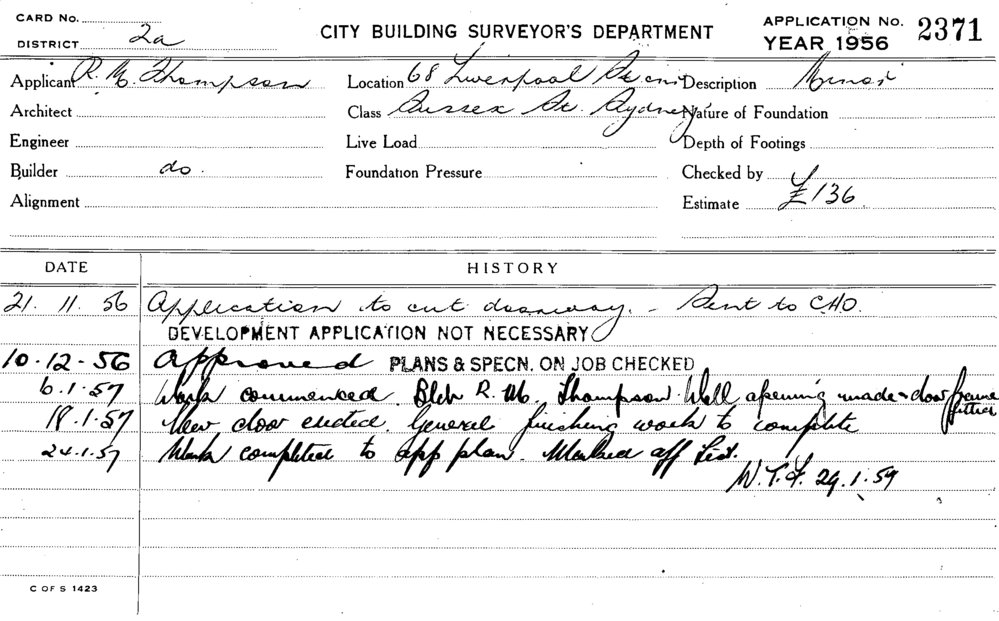 CARD No.
DISTRICT 2a
CITY BUILDING SURVEYOR'S DEPARTMENT
APPLICATION No. 2371
YEAR 1956
Applicant R. M. Thompson
Location 68 Liverpool St. cnr
Description Minor
Architect
Class Sussex St. Sydney
Nature of Foundation
Engineer
Live Load
Depth of Footings
Builder do.
Foundation Pressure
Checked by
Alignment
Estimate £136
DATE HISTORY
21. 11. 56 Application to cut doorway. - Sent to C.H.O.
DEVELOPMENT APPLICATION NOT NECESSARY
10-12-56 Approved PLANS & SPECN. ON JOB CHECKED
6.1.57 Work commenced. Bldr R. M. Thompson Wall opening made & door frame fitted
18.1.57 New door erected. General finishing work to complete
24.1.57 Work completed to app plan. Marked off List.
W.T.F. 29.1.59
C OF S 1423